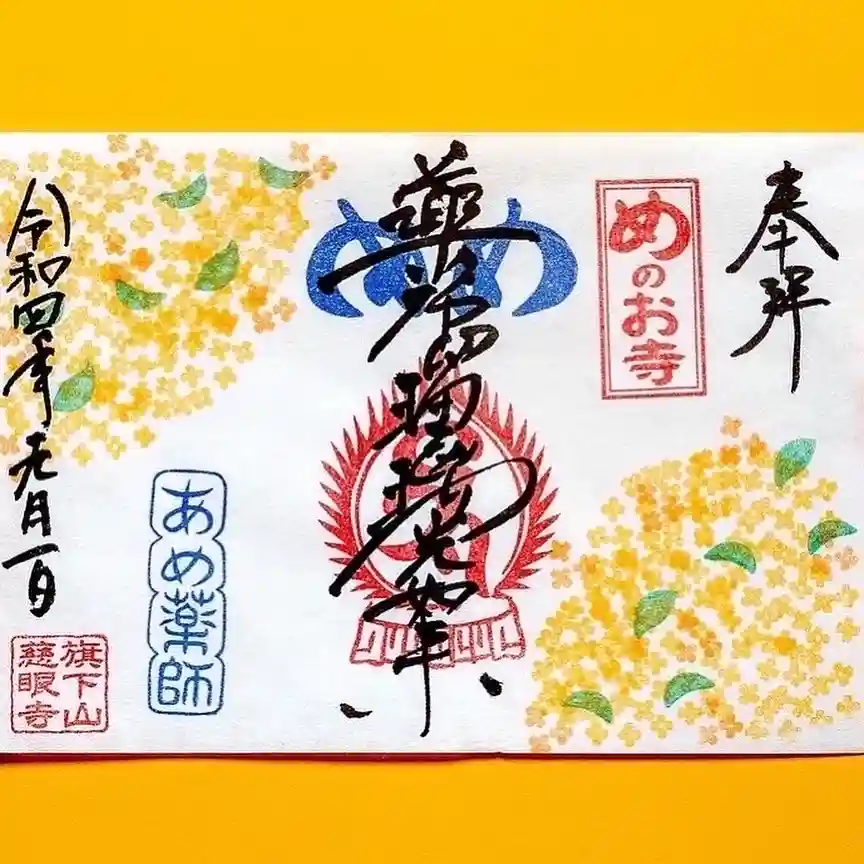 奉拝
めのお寺
めめ
薬師瑠璃光如来
あめ薬師
令和四年元月一日
旗下山
慈眼寺